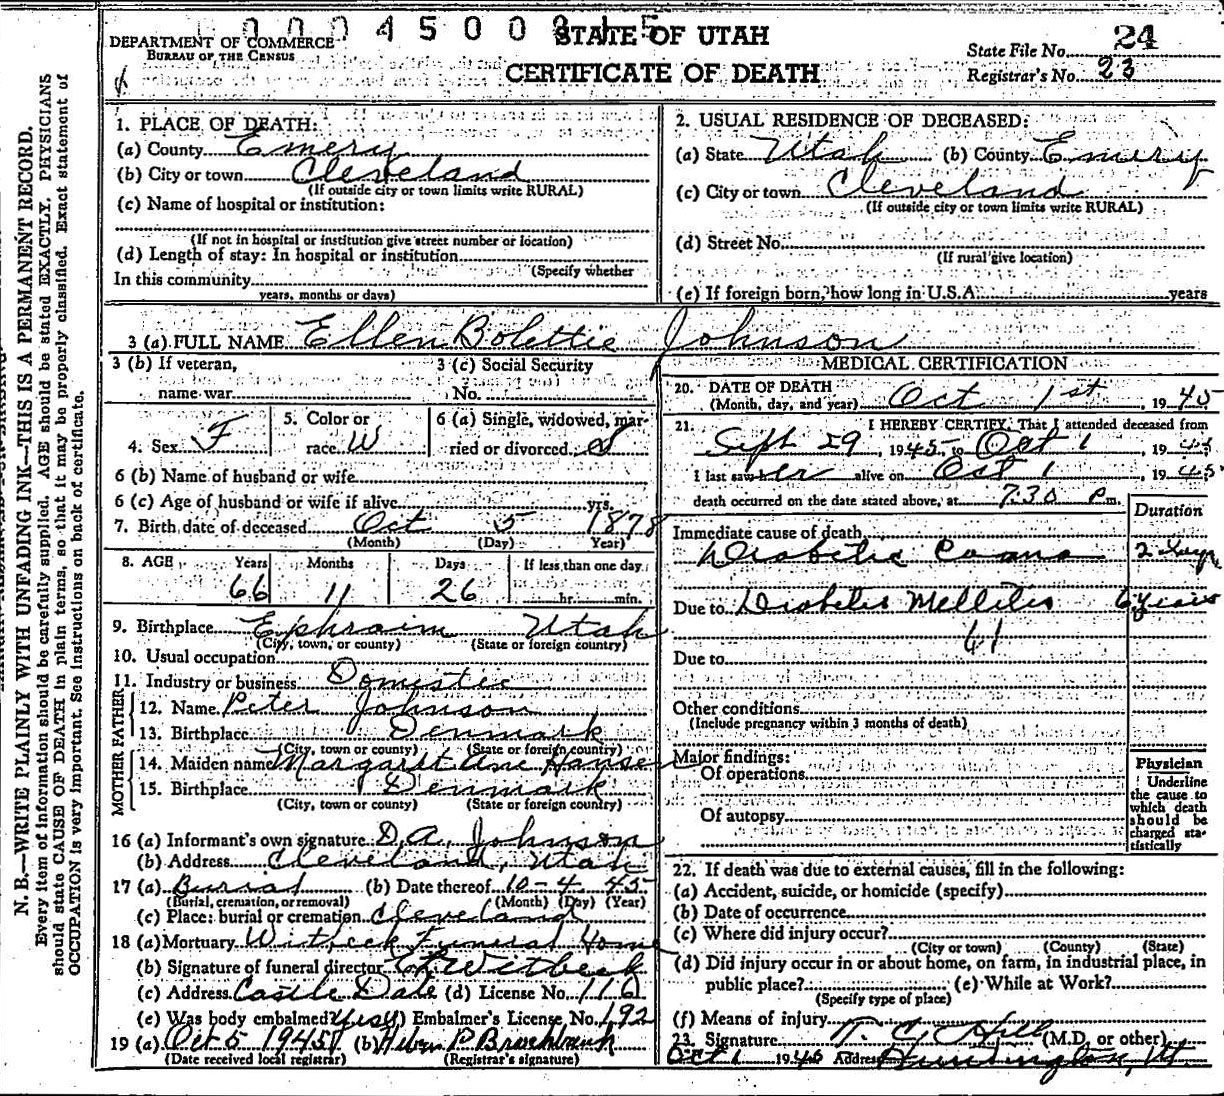 00045008 15
STATE OF UTAH
CERTIFICATE OF DEATH
DEPARTMENT OF COMMERCE
BUREAU OF THE CENSUS
State File No. 24
Registrar's No. 23
N. B.—WRITE PLAINLY WITH UNFADING INK—THIS IS A PERMANENT RECORD.
Every item of information should be carefully supplied. AGE should be stated EXACTLY. PHYSICIANS
should state CAUSE OF DEATH in plain terms, so that it may be properly classified. Exact statement of
OCCUPATION is very important. See instructions on back of certificate.
1. PLACE OF DEATH:
(a) County Emery
(b) City or town Cleveland
(If outside city or town limits write RURAL)
(c) Name of hospital or institution:
(If not in hospital or institution give street number or location)
(d) Length of stay: In hospital or institution
(Specify whether
In this community
years, months or days)
2. USUAL RESIDENCE OF DECEASED:
(a) State Utah (b) County Emery
(c) City or town Cleveland
(If outside city or town limits write RURAL)
(d) Street No.
(If rural give location)
(e) If foreign born, how long in U.S.A. years
3 (a) FULL NAME Ellen Bolettie Johnson
3 (b) If veteran,
name war
3 (c) Social Security
No.
4. Sex F
5. Color or
race W
6 (a) Single, widowed, mar-
ried or divorced S
6 (b) Name of husband or wife
6 (c) Age of husband or wife if alive yrs.
7. Birth date of deceased Oct 5 1878
(Month) (Day) Year)
8. AGE Years Months Days If less than one day
66 11 26 hr. min.
9. Birthplace Ephraim Utah
(City, town, or county) (State or foreign country)
10. Usual occupation
11. Industry or business Domestic
FATHER
12. Name Peter Johnson
13. Birthplace Denmark
(City, town or county) (State or foreign country)
MOTHER
14. Maiden name Margaret Ane Hansen
15. Birthplace Denmark
(City, town or county) (State or foreign country)
16 (a) Informant's own signature D.A. Johnson
(b) Address Cleveland, Utah
17 (a) Burial (b) Date thereof 10-4 45
(Burial, cremation, or removal) (Month) (Day) (Year)
(c) Place: burial or cremation Cleveland
18 (a) Mortuary Witbeck Funeral Home
(b) Signature of funeral director Witbeck
(c) Address Castle Dale (d) License No. 116
(e) Was body embalmed? yes (f) Embalmer's License No. 192
19 (a) Oct 5 1945 (b)
(Date received local registrar) (Registrar's signature)
MEDICAL CERTIFICATION
20. DATE OF DEATH
(Month, day, and year) Oct 1st, 1945
21. I HEREBY CERTIFY, That I attended deceased from
Sept 29, 1945, to Oct 1, 1945
I last saw er alive on Oct 1, 1945
death occurred on the date stated above, at 7:30 P m.
Duration
Immediate cause of death
Diabetic Coma 2 days
Due to Diabetes Mellitis 6 years
61
Due to
Other conditions
(Include pregnancy within 3 months of death)
Major findings:
Of operations
Of autopsy
Physician
Underline
the cause to
which death
should be
charged sta-
tistically
22. If death was due to external causes, fill in the following:
(a) Accident, suicide, or homicide (specify)
(b) Date of occurrence
(c) Where did injury occur?
(City or town) (County) (State)
(d) Did injury occur in or about home, on farm, in industrial place, in
public place? (e) While at Work?
(Specify type of place)
(f) Means of injury
23. Signature T. C. Hill (M.D. or other)
Oct 1 1945 Address Huntington, Ut.